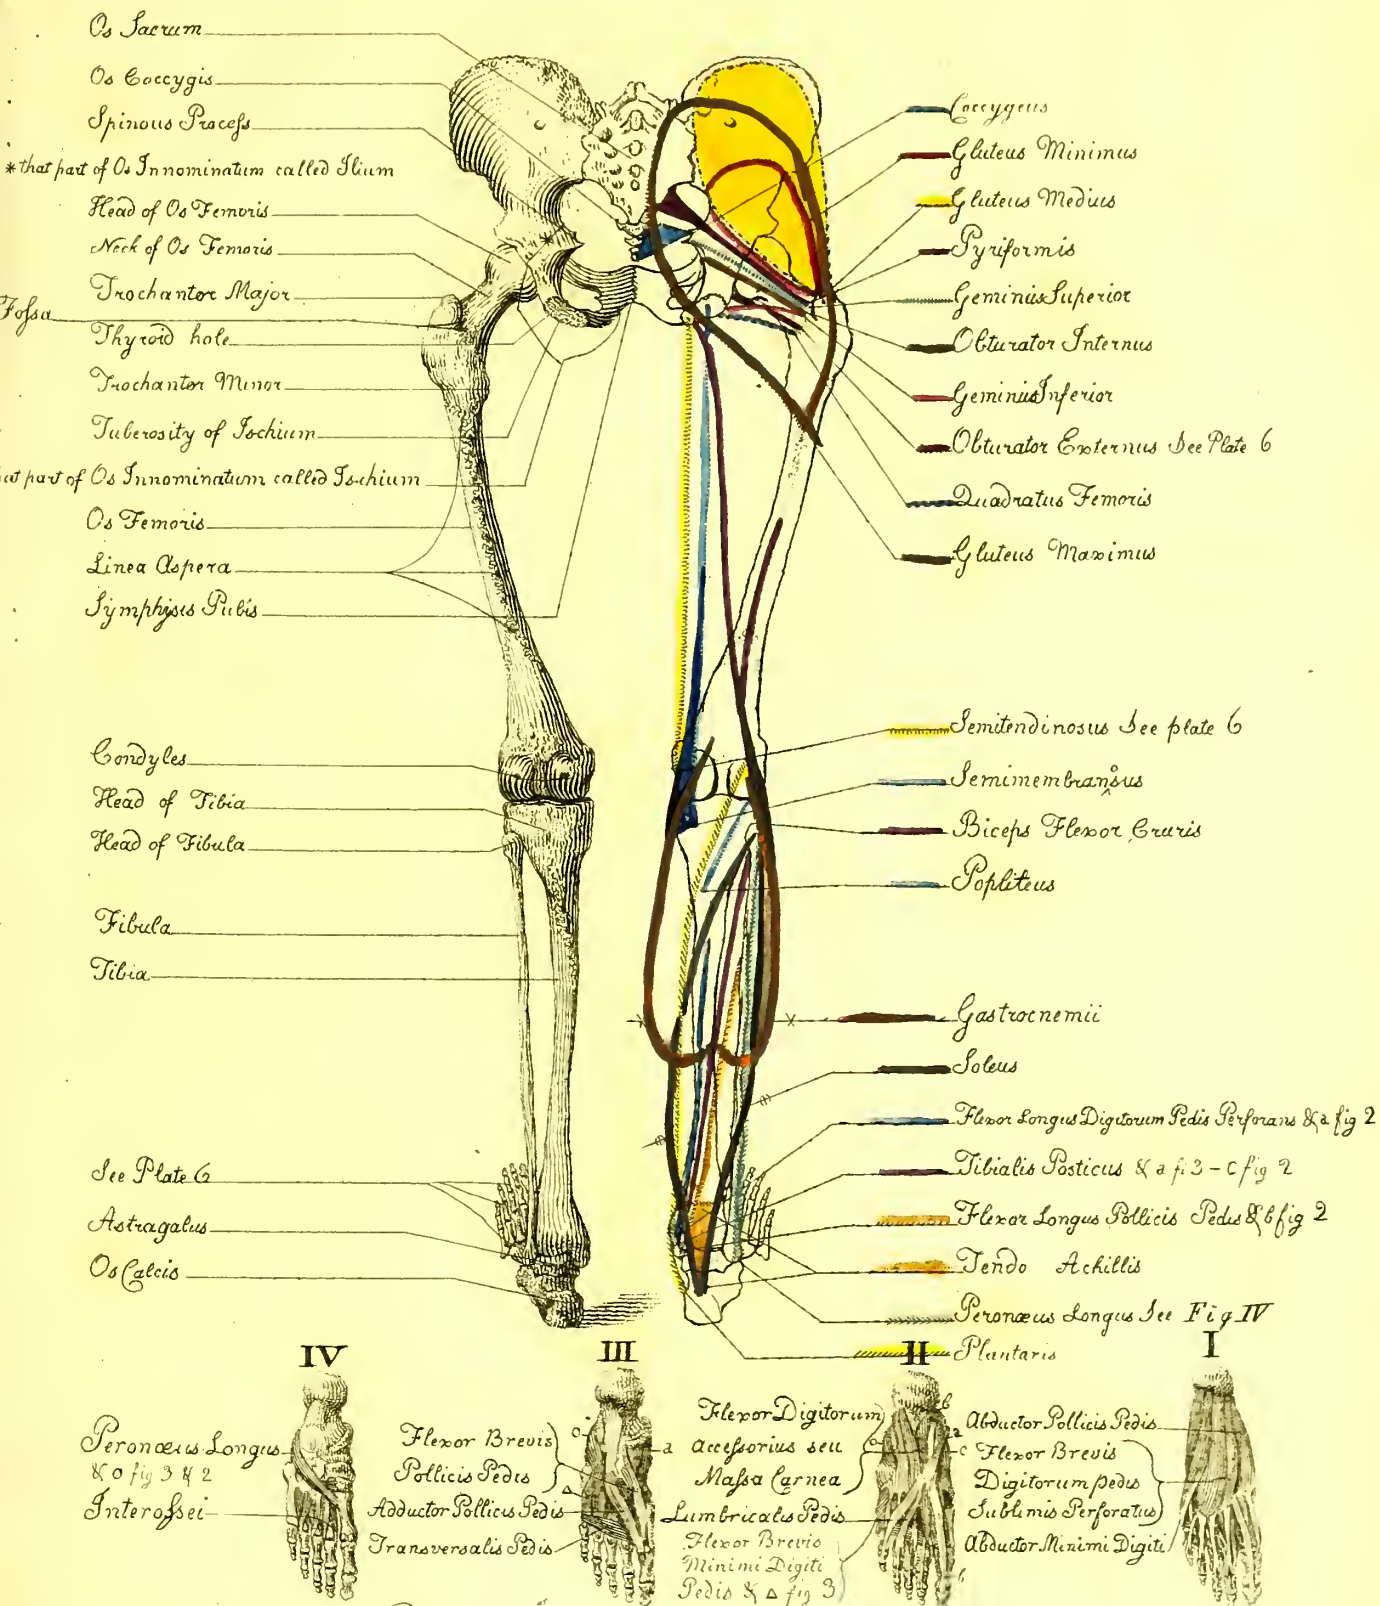 Os Sacrum
Os Coccygis
Spinous Process
*that part of Os Innominatum called Ilium
Head of Os Femoris
Neck of Os Femoris
Trochanter Major
Fossa
Thyroid hole
Trochanter Minor
Tuberosity of Ischium
part of Os Innominatum called Ischium
Os Femoris
Linea Aspera
Symphisis Pubis
Condyles
Head of Tibia
Head of Fibula
Fibula
Tibia
See Plate 6
Astragalus
Os Calcis
Coccygeus
Gluteus Minimus
Gluteus Medius
Pyriformis
Geminius Superior
Obturator Internus
Geminius Inferior
Obturator Externus See Plate 6
Quadratus Femoris
Gluteus Maximus
Semitendinosus See plate 6
Semimembranosus
Biceps Flexor Cruris
Popliteus
Gastrocnemii
Soleus
Flexor Longus Digitorum Pedis Perforans & a fig 2
Tibialis Posticus & a fi 3 - c fig 2
Flexor Longus Pollicis Pedis & b fig 2
Tendo Achillis
Peronæus Longus See Fig IV
Plantaris
IV
Peronæus Longus
& o fig 3 & 2
Interossei
III
c
a
Δ
Flexor Brevis
Pollicis Pedis
Adductor Pollicis Pedis
Transversalis Pedis
II
b
a
c
o
b
Flexor Digitorum
accessorius seu
Massa Carnea
Lumbricalis Pedis
Flexor Brevis
Minimi Digiti
Pedis & Δ fig 3
I
Abductor Pollicis Pedis
Flexor Brevis
Digitorum pedis
Sublimis Perforatus
Abductor Minimi Digiti